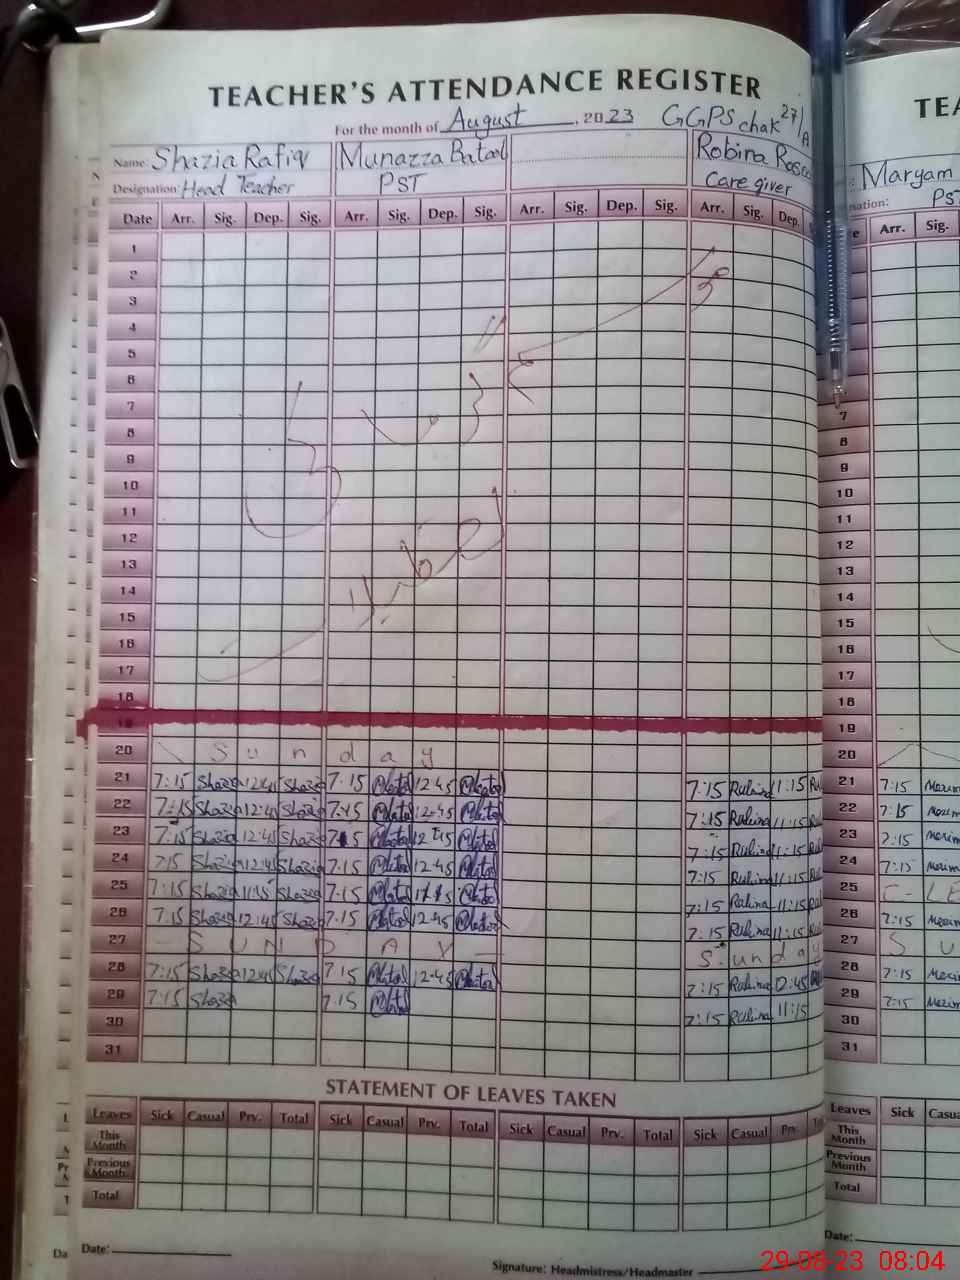 TEACHER'S ATTENDANCE REGISTER
For the month of August, 2023 GGPS chak 27/A
Name: Shazia Rafiq Munazza Batool Robina
Designation: Head Teacher PST Care giver
Date Arr. Sig. Dep. Sig. Arr. Sig. Dep. Sig. Arr. Sig. Dep. Sig. Arr. Sig. Dep.
1
2
3
4
5
6
7
8
9
10
11
12
13
14
15
16
17
18
19
موسم گرما کی
تعطیلات
20 Sunday
21 7:15 Shazia 12:45 Shazia 7:15 Batool 12:45 Batool 7:15 Rubina 11:15
22 7:15 Shazia 12:45 Shazia 7:15 Batool 12:45 Batool 7:15 Rubina 11:15
23 7:15 Shazia 12:45 Shazia 7:15 Batool 12:45 Batool 7:15 Rubina 11:15
24 7:15 Shazia 12:45 Shazia 7:15 Batool 12:45 Batool 7:15 Rubina 11:15
25 7:15 Shazia 11:45 Shazia 7:15 Batool Batool 7:15 Rubina 11:15
26 7:15 Shazia 12:45 Shazia 7:15 Batool 12:45 Batool 7:15 Rubina 11:15
27 SUNDAY Sunday
28 7:15 Shazia 12:45 Shazia 7:15 Batool 12:45 Batool 7:15 Rubina 12:45
29 7:15 Shazia 7:15 Batool 7:15 Rubina 11:15
30
31
STATEMENT OF LEAVES TAKEN
Leaves Sick Casual Prv. Total Sick Casual Prv. Total Sick Casual Prv. Total Sick Casual Prv.
This Month
Previous Month
Total
Date:
Signature: Headmistress/Headmaster
TEA
Maryam
nation: PST
Arr. Sig.
7
8
9
10
11
12
13
14
15
16
17
18
19
20
21 7:15
22 7:15
23 7:15
24 7:15
25 C-LE
26 7:15
27 SU
28 7:15
29 7:15
30
31
Leaves Sick
This Month
Previous Month
Total
Date:
29-08-23 08:04